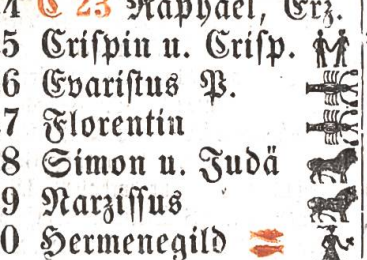 4 C 23 Raphael, Erz.
5 Crispin u. Crisp.
6 Evaristus P.
7 Florentin
8 Simon u. Judä
9 Narzissus
0 Hermenegild